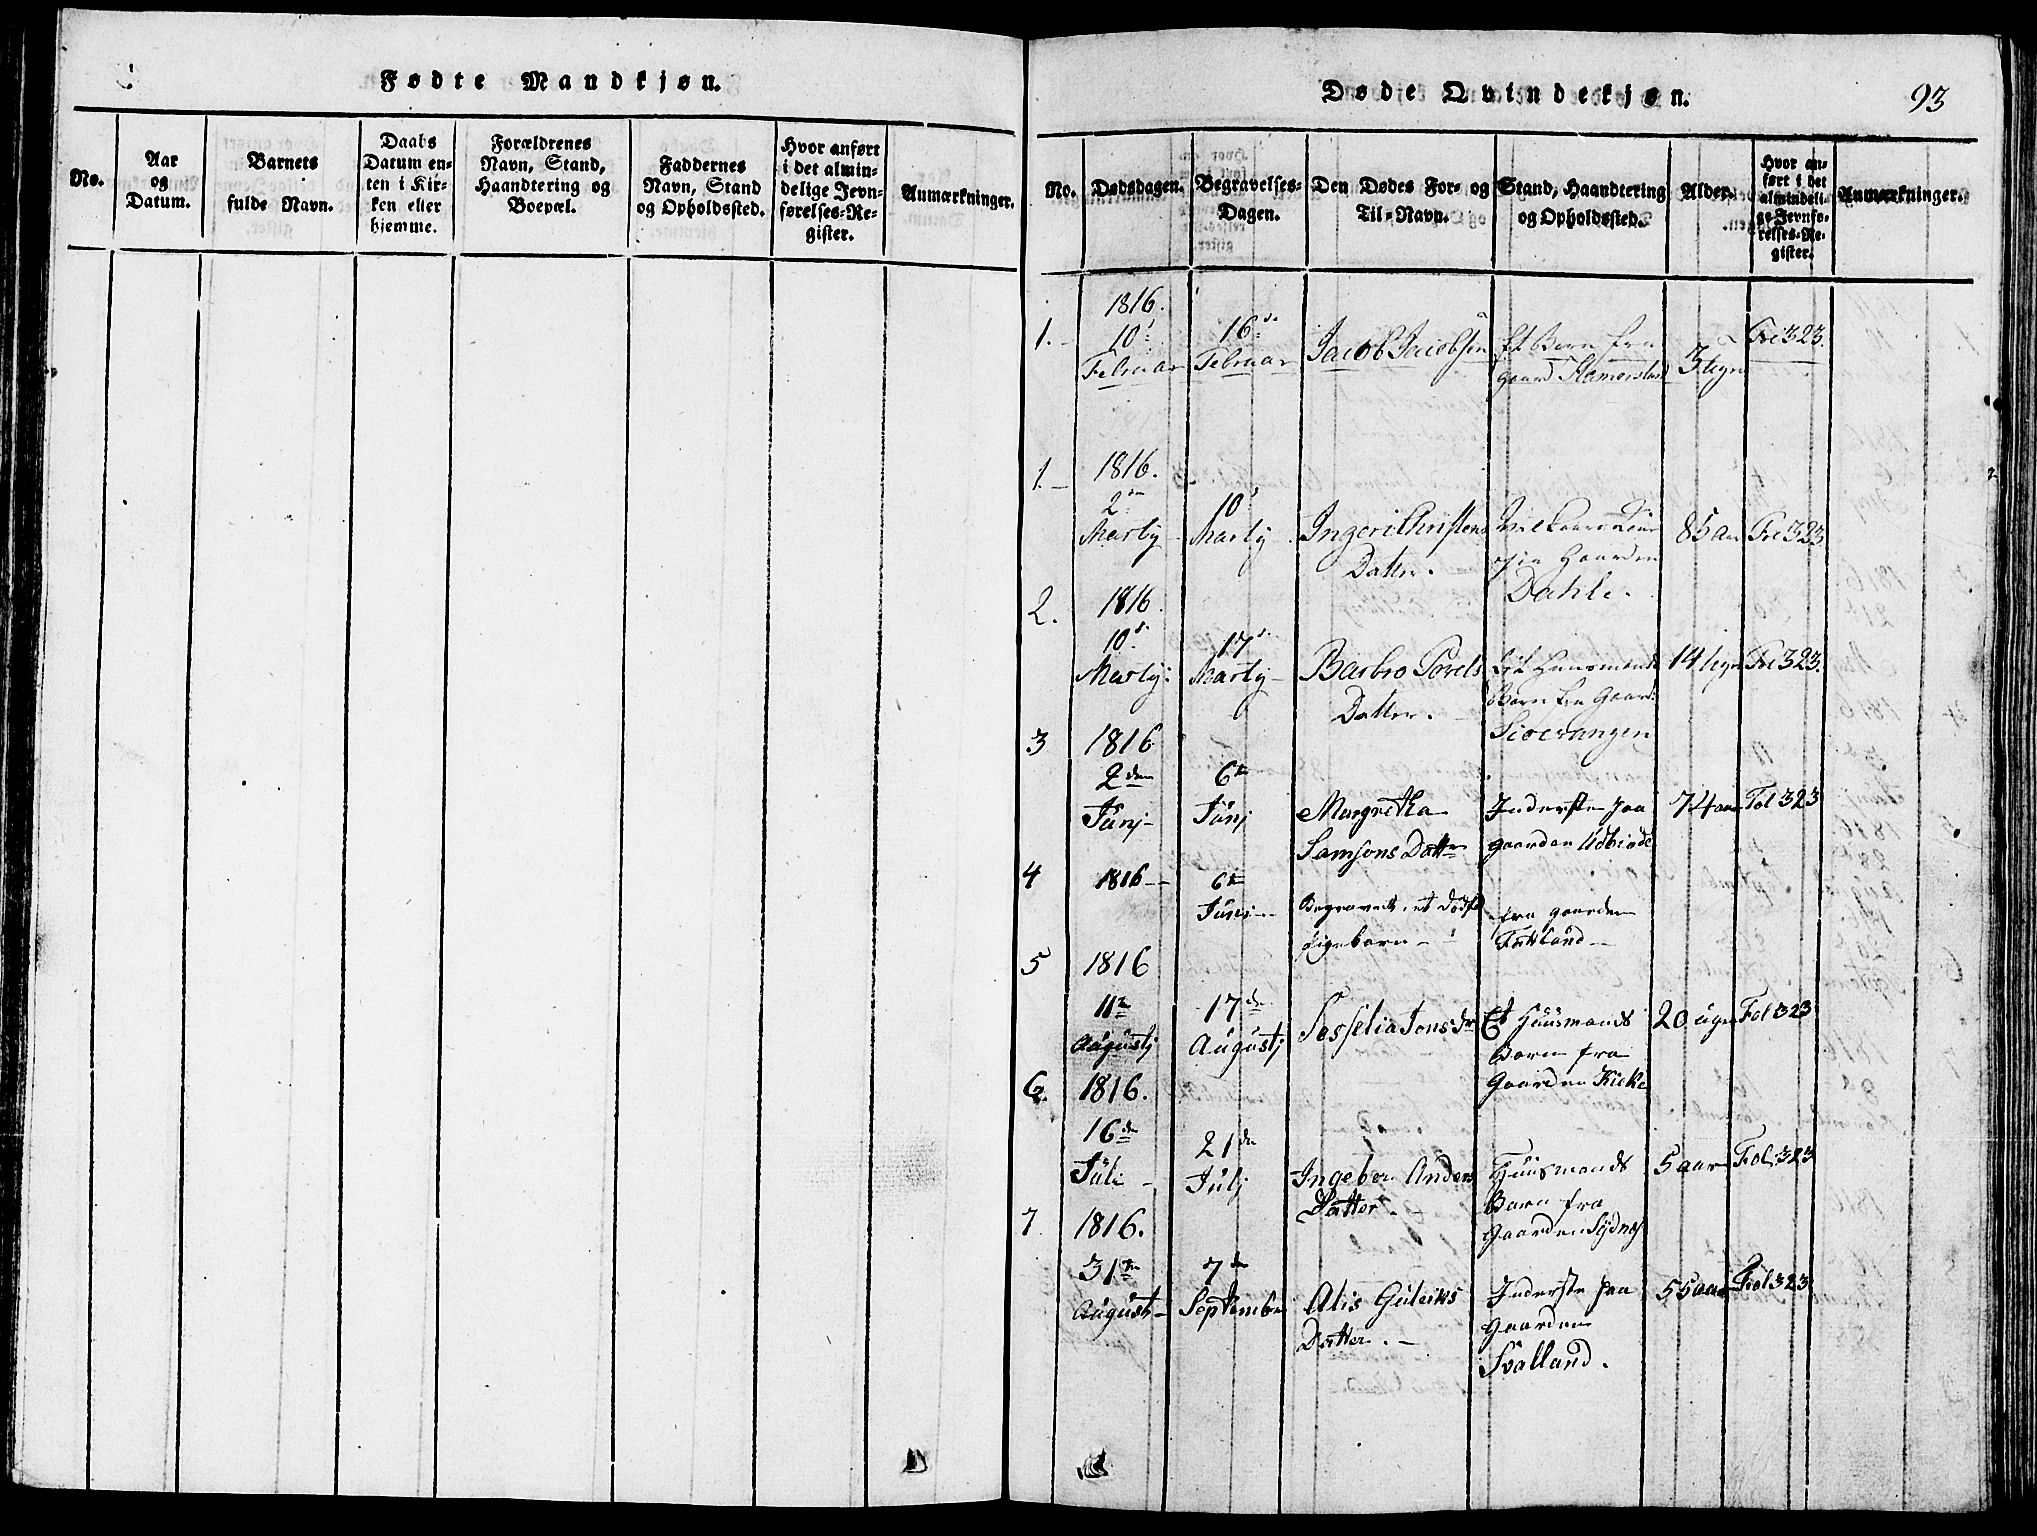 Fødte Mandkjøn.
No.
Aar
og
Datum.
Barnets
fulde Navn.
Daabs
Datum en-
ten i Kir-
ken eller
hjemme.
Forældrenes
Navn, Stand,
Haandtering og
Boepæl.
Faddernes
Navn, Stand
og Opholdssted.
Hvor anført
i det almin-
delige Jevn-
førelses-Re-
gister.
Anmærkninger.
Døde Qvindekjøn.
93
No.
Dødsdagen.
Begravelses-
Dagen.
Den Dødes For- og
Til-Navn.
Stand, Haandtering
og Opholdssted.
Alder.
Hvor an-
ført i det
almindeli-
ge Jevnfø-
relses-Re-
gister.
Anmærkninger.
1.
1816.
10
Februar
16
Februar
Jacob Jacobsen
Et Barn fra
gaard
3
323.
1.
1816.
2
Martij
10
Martij
Ingeri Christens
Datter.
Gaarden
Dahle.
85 aar
323
2.
1816.
10
Martij
17
Martij
Barbro Povels
Datter.
Huusmands
Barn fra Gaard
Sioevangen
14
323.
3
1816
2den
Junj
6te
Junj
Margretha
Samsons Datter
Inderste paa
gaarden Udbinde
74 aar
Fol 323
4
1816
6te
Junj
Begravet et dødfød
Pigebarn
fra gaarden
Fattland
5
1816
11te
Augustj
17de
Augustj
Sesselia Jons dr
Et Huusmands
Barn fra
Gaarden Kieke
20 uger
Fol 323
6.
1816.
16de
Juli
21de
Julj
Ingebor Anders
Datter.
Huusmands
Barn fra
Gaarden Sydnes
5 aar
Fol 323
7
1816.
31te
August
7de
September
Alis Guleiks
Datter.
Inderste paa
Gaarden
Svalland.
55 aar
Fol 323